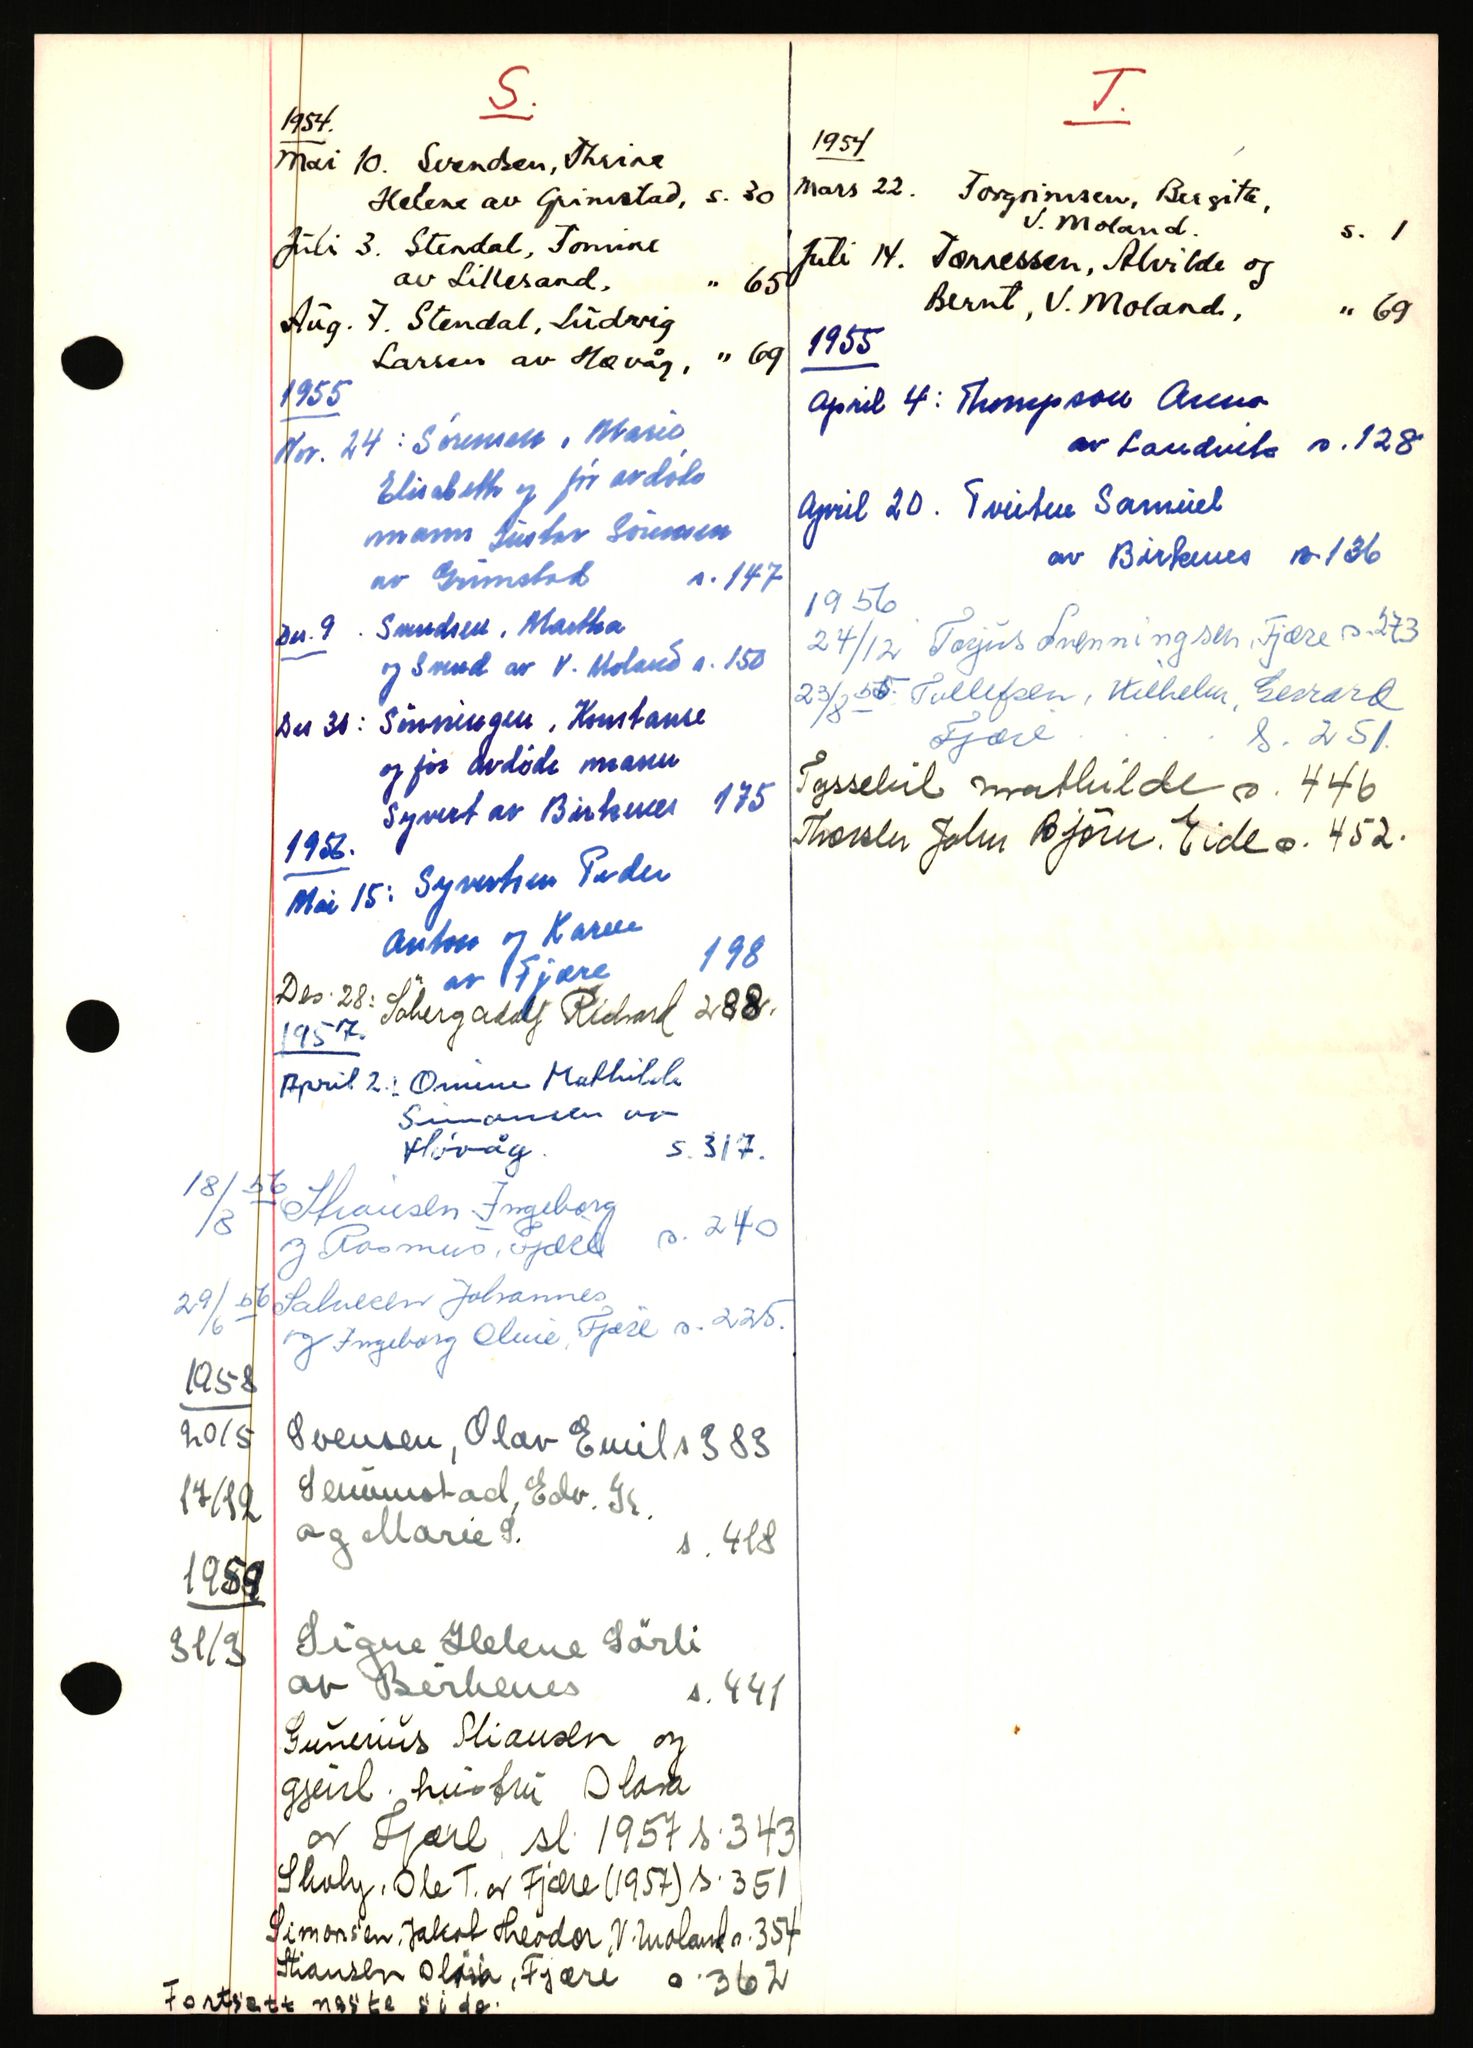 S.
1954.
Mai 10. Svendsen, Thrine
Helene av Grimstad, s. 30
Juli 3. Stendal, Tomine
av Lillesand, " 65
Aug. 7. Stendal, Ludvig
Larsen av Høvåg, " 69
1955
Nov. 24: Sørensen, Marie
Elisabeth og for avdøde
mann Gustav Sörensen
av Grimstad s. 147
Des. 9. Svendsen, Martha
og Svend av V. Moland s. 150
Des 30: Sinningen, Konstanse
og for avdöde mann
Syvert av Birkenes 175
1956.
Mai 15: Syvertsen Peder
Anton og Karen
av Fjære 198
Des. 28: Söberg Adolf Richard 288.
1957.
April 2.: Omine Mathilde
Simonsen av
Hövåg. s. 317.
18/8 56 Stiansen Ingeborg
og Rasmus, Fjære s. 240
29/6 56 Salvesen Johannes
og Ingeborg Oline, Fjære s. 225.
1958
20/5 Svensen, Olav Emil s 383
17/12 Edv. Gr.
og Marie S. s. 418
1959
31/3 Signe Helene Sörli
av Birkenes s. 441
Gunerius Stiansen og
gjenl. hustru Olava
av Fjære sl. 1957 s. 343
Skoly, Ole T. av Fjære (1957) s. 351
Simonsen, Jakob Theodor, V. Moland s. 354
Stiansen Olava, Fjære s. 362
Fortsett neste side.
T.
1954
Mars 22. Torgrimsen, Bergite,
V. Moland. s. 1
Juli 14. Tørressen, Alvilde og
Bernt, V. Moland, " 69
1955
April 4: Thompson Anna
av Landvik s. 128
April 20. Tveiten Samuel
av Birkenes s 136
1956
24/12 Torjus Svenningsen, Fjære s. 273
23/8 56 Tellefsen, Wilhelm, Gerrard
Fjære . . . . s. 251.
Mathilde s. 446
John Björn. Eide s. 452.